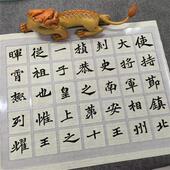 使持節鎮北
大將軍相州
刺史南安王
楨恭之第十
一子皇上之
從祖也惟王
暉霄無列耀